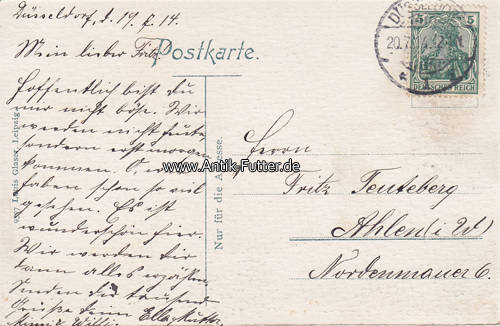 Düsseldorf, d. 19. 7. 14.
Mein lieber Fritz
Postkarte.
Hoffentlich bist du
mir nicht böse. Wir
werden nicht heute,
sondern erst morgen
kommen. O, wir
haben schon so viel
gesehen. Es ist
wunderschön hier.
Wir werden dir
dann alles erzählen.
Senden dir tausend
Grüße denn Ella, Mutter,
Willi
Louis Glaser, Leipzig
Nur für die Adresse.
www.Antik-Futter.de
DÜSSELDORF
20.7.
5 5
DEUTSCHES REICH
Herrn
Fritz Teuteberg
Ahlen (i W)
Nordenmauer 6.